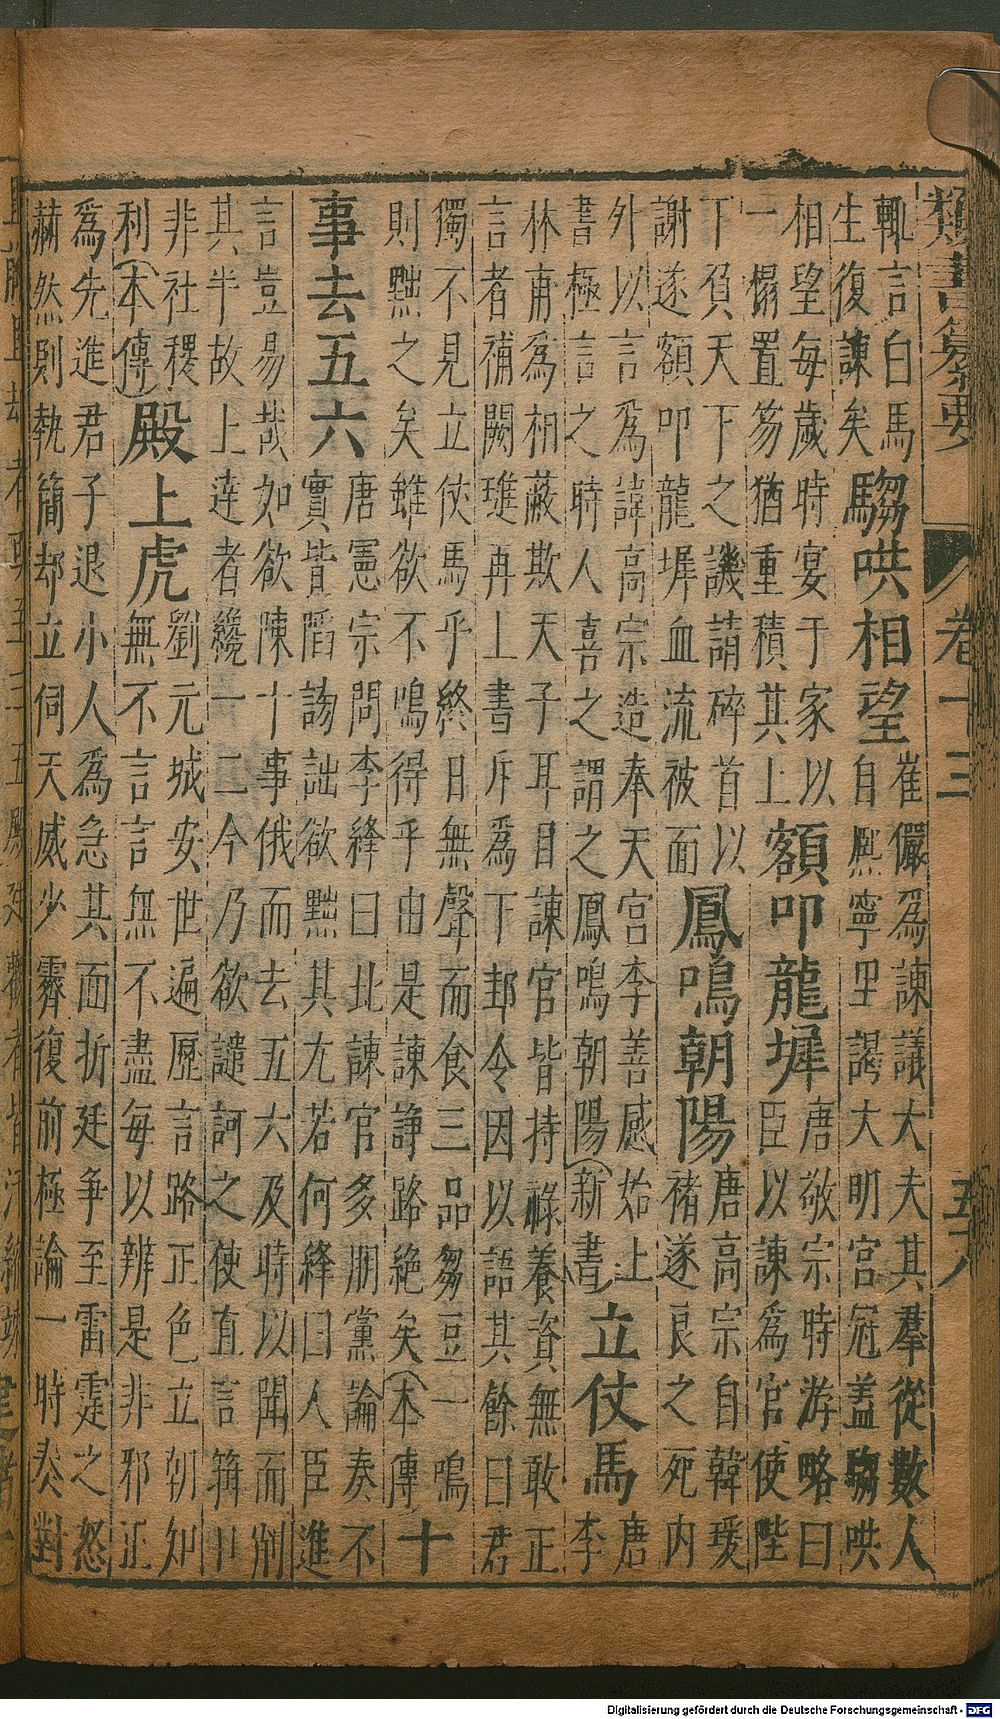 類書纂要 卷十三 五十八
輒言白馬
生復諫矣
騶哄相望
崔儼為諫議大夫其羣從數人
自熙寧里謁大明宮冠蓋騶哄
相望每歲時宴于家以
一榻置笏猶重積其上
額叩龍墀
唐敬宗時游略曰
臣以諫為官使陛
下負天下之譏請碎首以
謝遂額叩龍墀血流被面
鳳鳴朝陽
唐高宗自韓瑗
褚遂良之死内
外以言為諱高宗造奉天宮李善感始上
書極言之時人喜之謂之鳳鳴朝陽(新書)
立仗馬
唐
李
林甫為相蔽欺天子耳目諫官皆持祿養資無敢正
言者補闕璡再上書斥為下邽令因以語其餘曰君
獨不見立仗馬乎終日無聲而食三品芻豆一鳴
則黜之矣雖欲不鳴得乎由是諫諍路絕矣(本傳)
十
事去五六
唐憲宗問李絳曰比諫官多朋黨論奏不
實皆謟謗訕欲黜其尤若何絳曰人臣進
言豈易哉如欲陳十事俄而去五六及時以聞而削
其半故上達者纔一二今乃欲譴訶之使直言箝口
非社稷
利(本傳)
殿上虎
劉元城安世遍歷言路正色立朝知
無不言言無不盡每以辨是非邪正
為先進君子退小人為急其面折廷爭至雷霆之怒
赫然則執簡却立伺天威少霽復前極論一時奏對
Digitalisierung gefördert durch die Deutsche Forschungsgemeinschaft - DFG